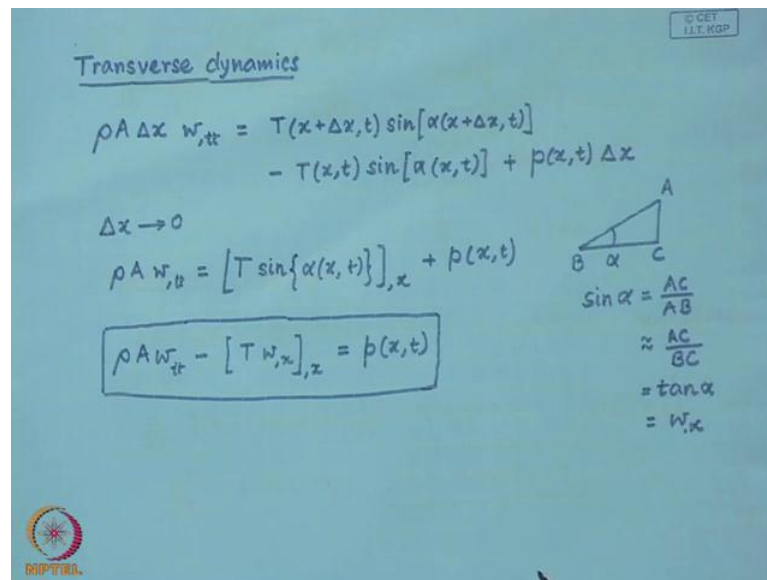 © CET
I.I.T. KGP
Transverse dynamics
ρA Δx w,tt = T(x+Δx,t) sin[α(x+Δx,t)]
- T(x,t) sin[α(x,t)] + p(x,t) Δx
Δx → 0
ρA w,tt = [T sin{α(x,t)}],x + p(x,t)
ρA w,tt - [T w,x],x = p(x,t)
A
B α C
sin α = AC/AB
≈ AC/BC
= tan α
= w,x
NPTEL